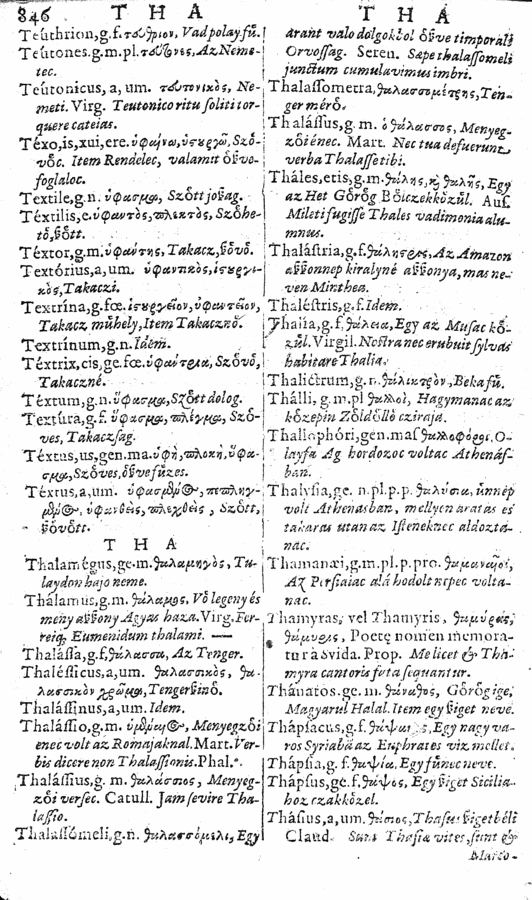 846 T H A
Teúthrion, g.f. τεύθριον, Vad polay fű.
Teútones. g.m. pl. τεύτονες, Az Neme-
tec.
Teútonicus, a, um. τευτονικὸς, Ne-
meti. Virg. Teutonico ritu soliti tor-
quere cateias.
Téxo, is, xui, ere. ὑφαίνω, ἱστουργῶ, Szö-
vöc. Item Rendelec, valamit öszvo-
foglaloc.
Textile, g.n. ὕφασμα, Szött joszag.
Téxtilis, e. ὑφαντὸς, πλεκτὸς, Szöhe-
tö, szött.
Téxtor, g.m. ὑφαντης, Takacz, szövö.
Textórius, a, um. ὑφαντικὸς, ἱστουργι-
κὸς, Takaczi.
Textrína, g.fœ. ἱστουργεῖον, ὑφαντεῖον,
Takacz műhely, Item Takacznö.
Textrínum, g.n. Idem.
Téxtrix, cis, ge. fœ. ὑφάντρια, Szövö,
Takaczné.
Téxtum, g.n. ὕφασμα, Szött dolog.
Textúra, g.f. ὕφασμα, πλέγμα, Szö-
ves, Takaczsag.
Téxtus, us, gen. ma. ὑφὴ, πλοκὴ, ὕφα-
σμα, Szöves, öszvefűzes.
Téxtus, a, um.
szövött.
T H A
Thalamégus, ge. m. θαλαμηγὸς, Tu-
laydon hajo neme.
Thálamus, g.m. θάλαμος, Vö legeny és
meny asszony Agyas haza. Virg. Fer-
reiq; Eumenidum thalami.
Thalássa, g.f. θάλασσα, Az Tenger.
Thalássicus, a, um. θαλασσικὸς, θα-
λασσικὸν χρῶμα, Tengerszinö.
Thalássinus, a, um. Idem.
Thalássio, g.m. Menyegzöi
enec volt az Romajaknal. Mart. Ver-
bis dicere non Thalassionis. Phal.
Thalássius, g. m. θαλάσσιος, Menyeg-
zöi versec. Catull. Jam servire Tha-
lassio.
Thalassómeli, g.n. θαλασσόμελι, Egy
T H A
árant valo dolgokbol öszve timporált
Orvossag. Seren. Sæpe thalassomeli
junctum cumulavimus imbri.
Thalassometra, θαλασσομέτρης, Ten-
ger mérö.
Thalássus, g. m. ὁ θάλασσος, Menyeg-
zöi énec. Mart. Nec tua defuerunt
verba Thalasse tibi.
Tháles, etis, g. m. θάλης, ϗ θαλῆς, Egy
az Het Görög Bölczekközűl. Aus.
Mileti fugisse Thales vadimonia alu-
mnus.
Thaléstria, g.f. θαλήστρις, Az Amazon
asszonnep kiralyné asszonya, mas ne-
ven Minthea.
Thaléstris, g.f. Idem.
Thalía, g.f. θάλεια, Egy az Musac kö-
zűl. Virgil. Nostra nec erubuit sylvas
habitare Thalia.
Thalíctrum, g.n. θάλικτρον, Beka fű.
Thálli, g. m. pl θαλλοὶ, Hagymanac az
közepin Zöldöllö cziraja.
Thallophóri, gen. mas θαλλοφόροι, O-
layfa Ag hordozoc voltac Athenás-
ban.
Thalysia, ge. n. pl. p.p. θαλύσια, ünnep
volt Athenasban, mellyen aratas es
takaras utan az Isteneknec aldozta-
nac.
Thamanæi, g.m. pl. p. pro. θαμαναῖοι,
Az Persiaiac alá hodolt nepec volta-
nac.
Thamyras, vel Thamyris, θαμύρας,
θάμυρις, Poetę nomen memora-
tur à Svida. Prop. Me licet & Tha-
myra cantoris fata sequantur.
Thánatos. ge. m. θάνατος, Görög ige,
Magyarul Halal. Item egy sziget neve.
Thápsacus, g.f. θάψακος, Egy nagy va-
ros Syriabã az Euphrates viz mellet.
Thápsia, g.f. θαψία, Egy fűnec neve.
Thápsus, ge. f. θάψος, Egy sziget Sicilia-
hoz czakközel.
Thásius, a, um. θάσιος, Thasus szigetbéli
Claud. Sunt Thasiæ vites, sunt &
Mareo-